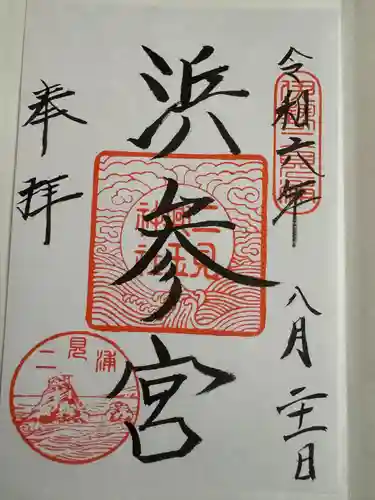 令和六年八月二十一日
浜参宮
奉拝
二見興玉神社
二見浦